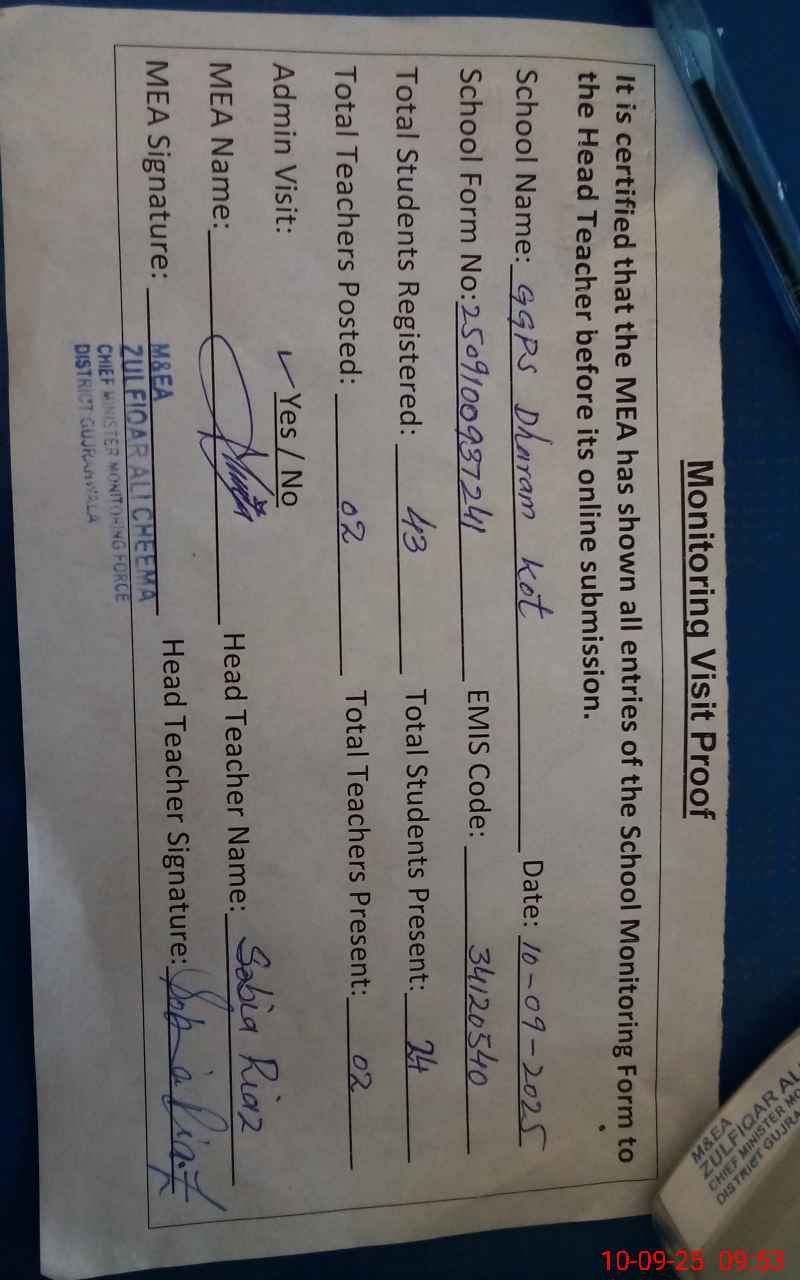 Monitoring Visit Proof
It is certified that the MEA has shown all entries of the School Monitoring Form to
the Head Teacher before its online submission.
School Name: GGPS Dharam Kot Date: 10-09-2025
School Form No: 250910093724 EMIS Code: 34120540
Total Students Registered: 43 Total Students Present: 24
Total Teachers Posted: 02 Total Teachers Present: 02
Admin Visit: ✓ Yes / No
MEA Name: Head Teacher Name: Sobia Riaz
MEA Signature: Head Teacher Signature: Sobia Riaz
M&EA
ZULFIQAR ALI CHEEMA
CHIEF MINISTER MONITORING FORCE
DISTRICT GUJRANWALA
M&EA
ZULFIQAR AL
CHIEF MINISTER MO
DISTRICT GUJRA
10-09-25 09:53